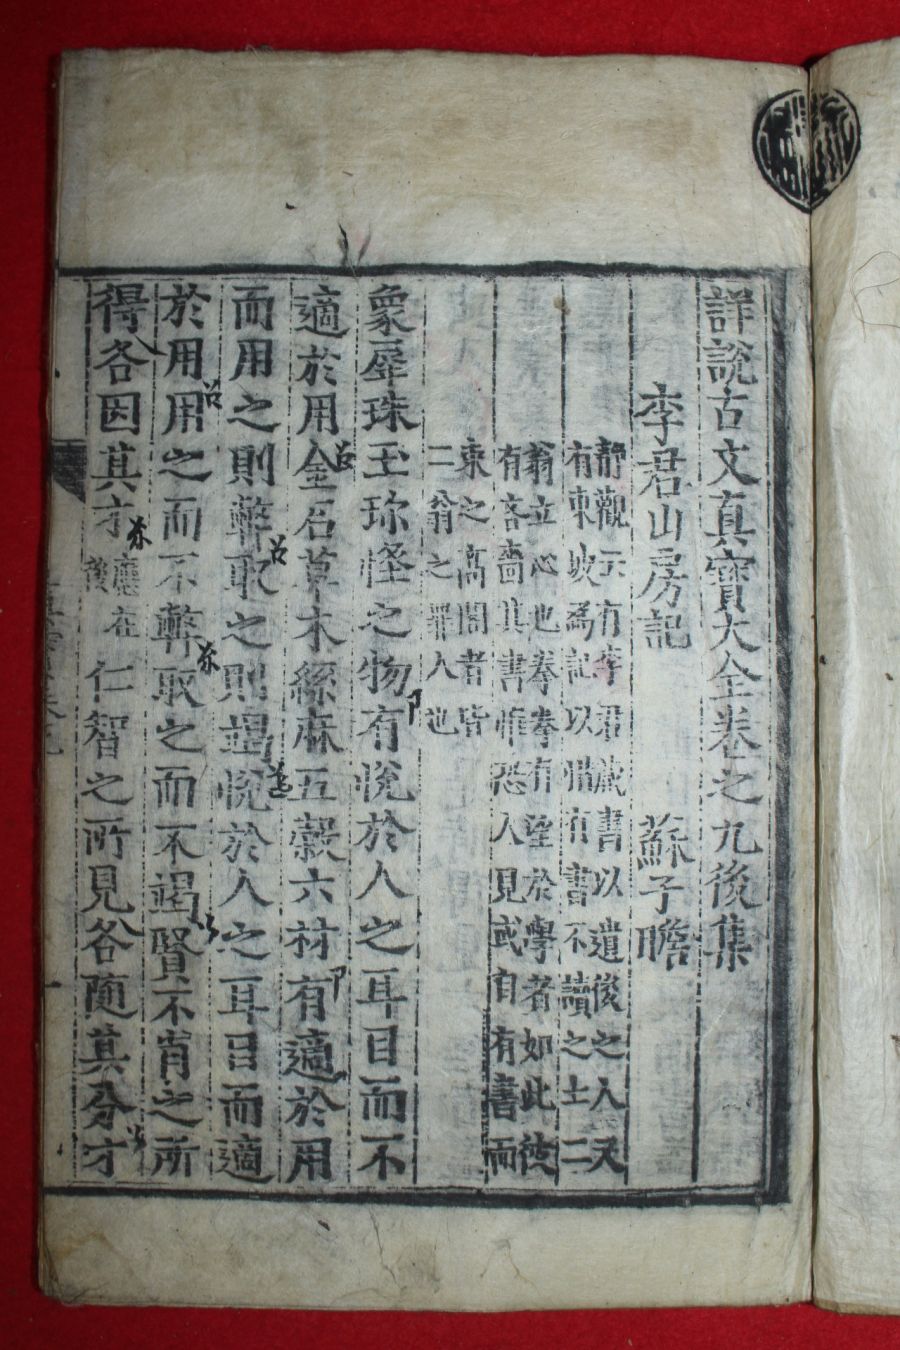 詳說古文真寶大全卷之九後集
李君山房記 蘇子瞻
靜觀云有李君藏書以遺後之人又
有東坡爲記以惜有書不讀之士二
翁立心也拳拳有望於學者如此彼
有吝嗇其書惟恐人見或自有書而
束之高閣者皆
二翁之罪人也
象犀珠玉珎怪之物有悅於人之耳目而不
適於用金石草木絲麻五穀六材有適於用
而用之則弊取之則竭悅於人之耳目而適
於用用之而不弊取之而不竭賢不肖之所
得各因其才仁智之所見各隨其分才